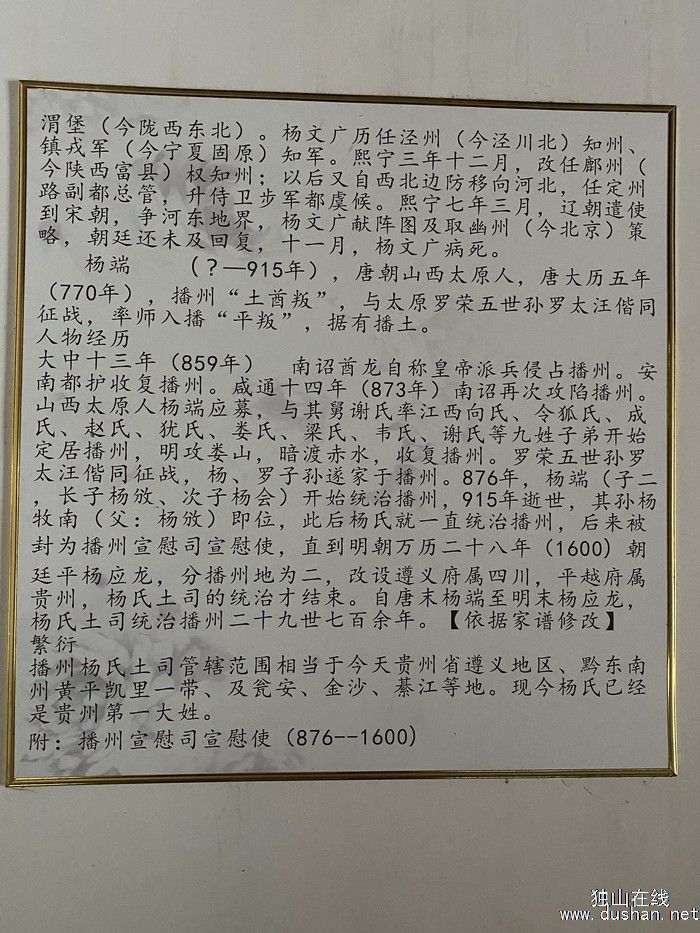 渭堡（今陇西东北）。杨文广历任泾州（今泾川北）知州、
镇戎军（今宁夏固原）知军。熙宁三年十二月，改任鄜州（
今陕西富县）权知州；以后又自西北边防移向河北，任定州
路副都总管，升侍卫步军都虞候。熙宁七年三月，辽朝遣使
到宋朝，争河东地界，杨文广献阵图及取幽州（今北京）策
略，朝廷还未及回复，十一月，杨文广病死。
杨端　　（？—915年），唐朝山西太原人，唐大历五年
（770年），播州“土酋叛”，与太原罗荣五世孙罗太汪偕同
征战，率师入播“平叛”，据有播土。
人物经历
大中十三年（859年）　南诏酋龙自称皇帝派兵侵占播州。安
南都护收复播州。咸通十四年（873年）南诏再次攻陷播州。
山西太原人杨端应募，与其舅谢氏率江西向氏、令狐氏、成
氏、赵氏、犹氏、娄氏、梁氏、韦氏、谢氏等九姓子弟开始
定居播州，明攻娄山，暗渡赤水，收复播州。罗荣五世孙罗
太汪偕同征战，杨、罗子孙遂家于播州。876年，杨端（子二
，长子杨攽、次子杨会）开始统治播州，915年逝世，其孙杨
牧南（父：杨攽）即位，此后杨氏就一直统治播州，后来被
封为播州宣慰司宣慰使，直到明朝万历二十八年（1600）朝
廷平杨应龙，分播州地为二，改设遵义府属四川，平越府属
贵州，杨氏土司的统治才结束。自唐末杨端至明末杨应龙，
杨氏土司统治播州二十九世七百余年。【依据家谱修改】
繁衍
播州杨氏土司管辖范围相当于今天贵州省遵义地区、黔东南
州黄平凯里一带、及瓮安、金沙、綦江等地。现今杨氏已经
是贵州第一大姓。
附：播州宣慰司宣慰使（876--1600）
独山在线
www.dushan.net